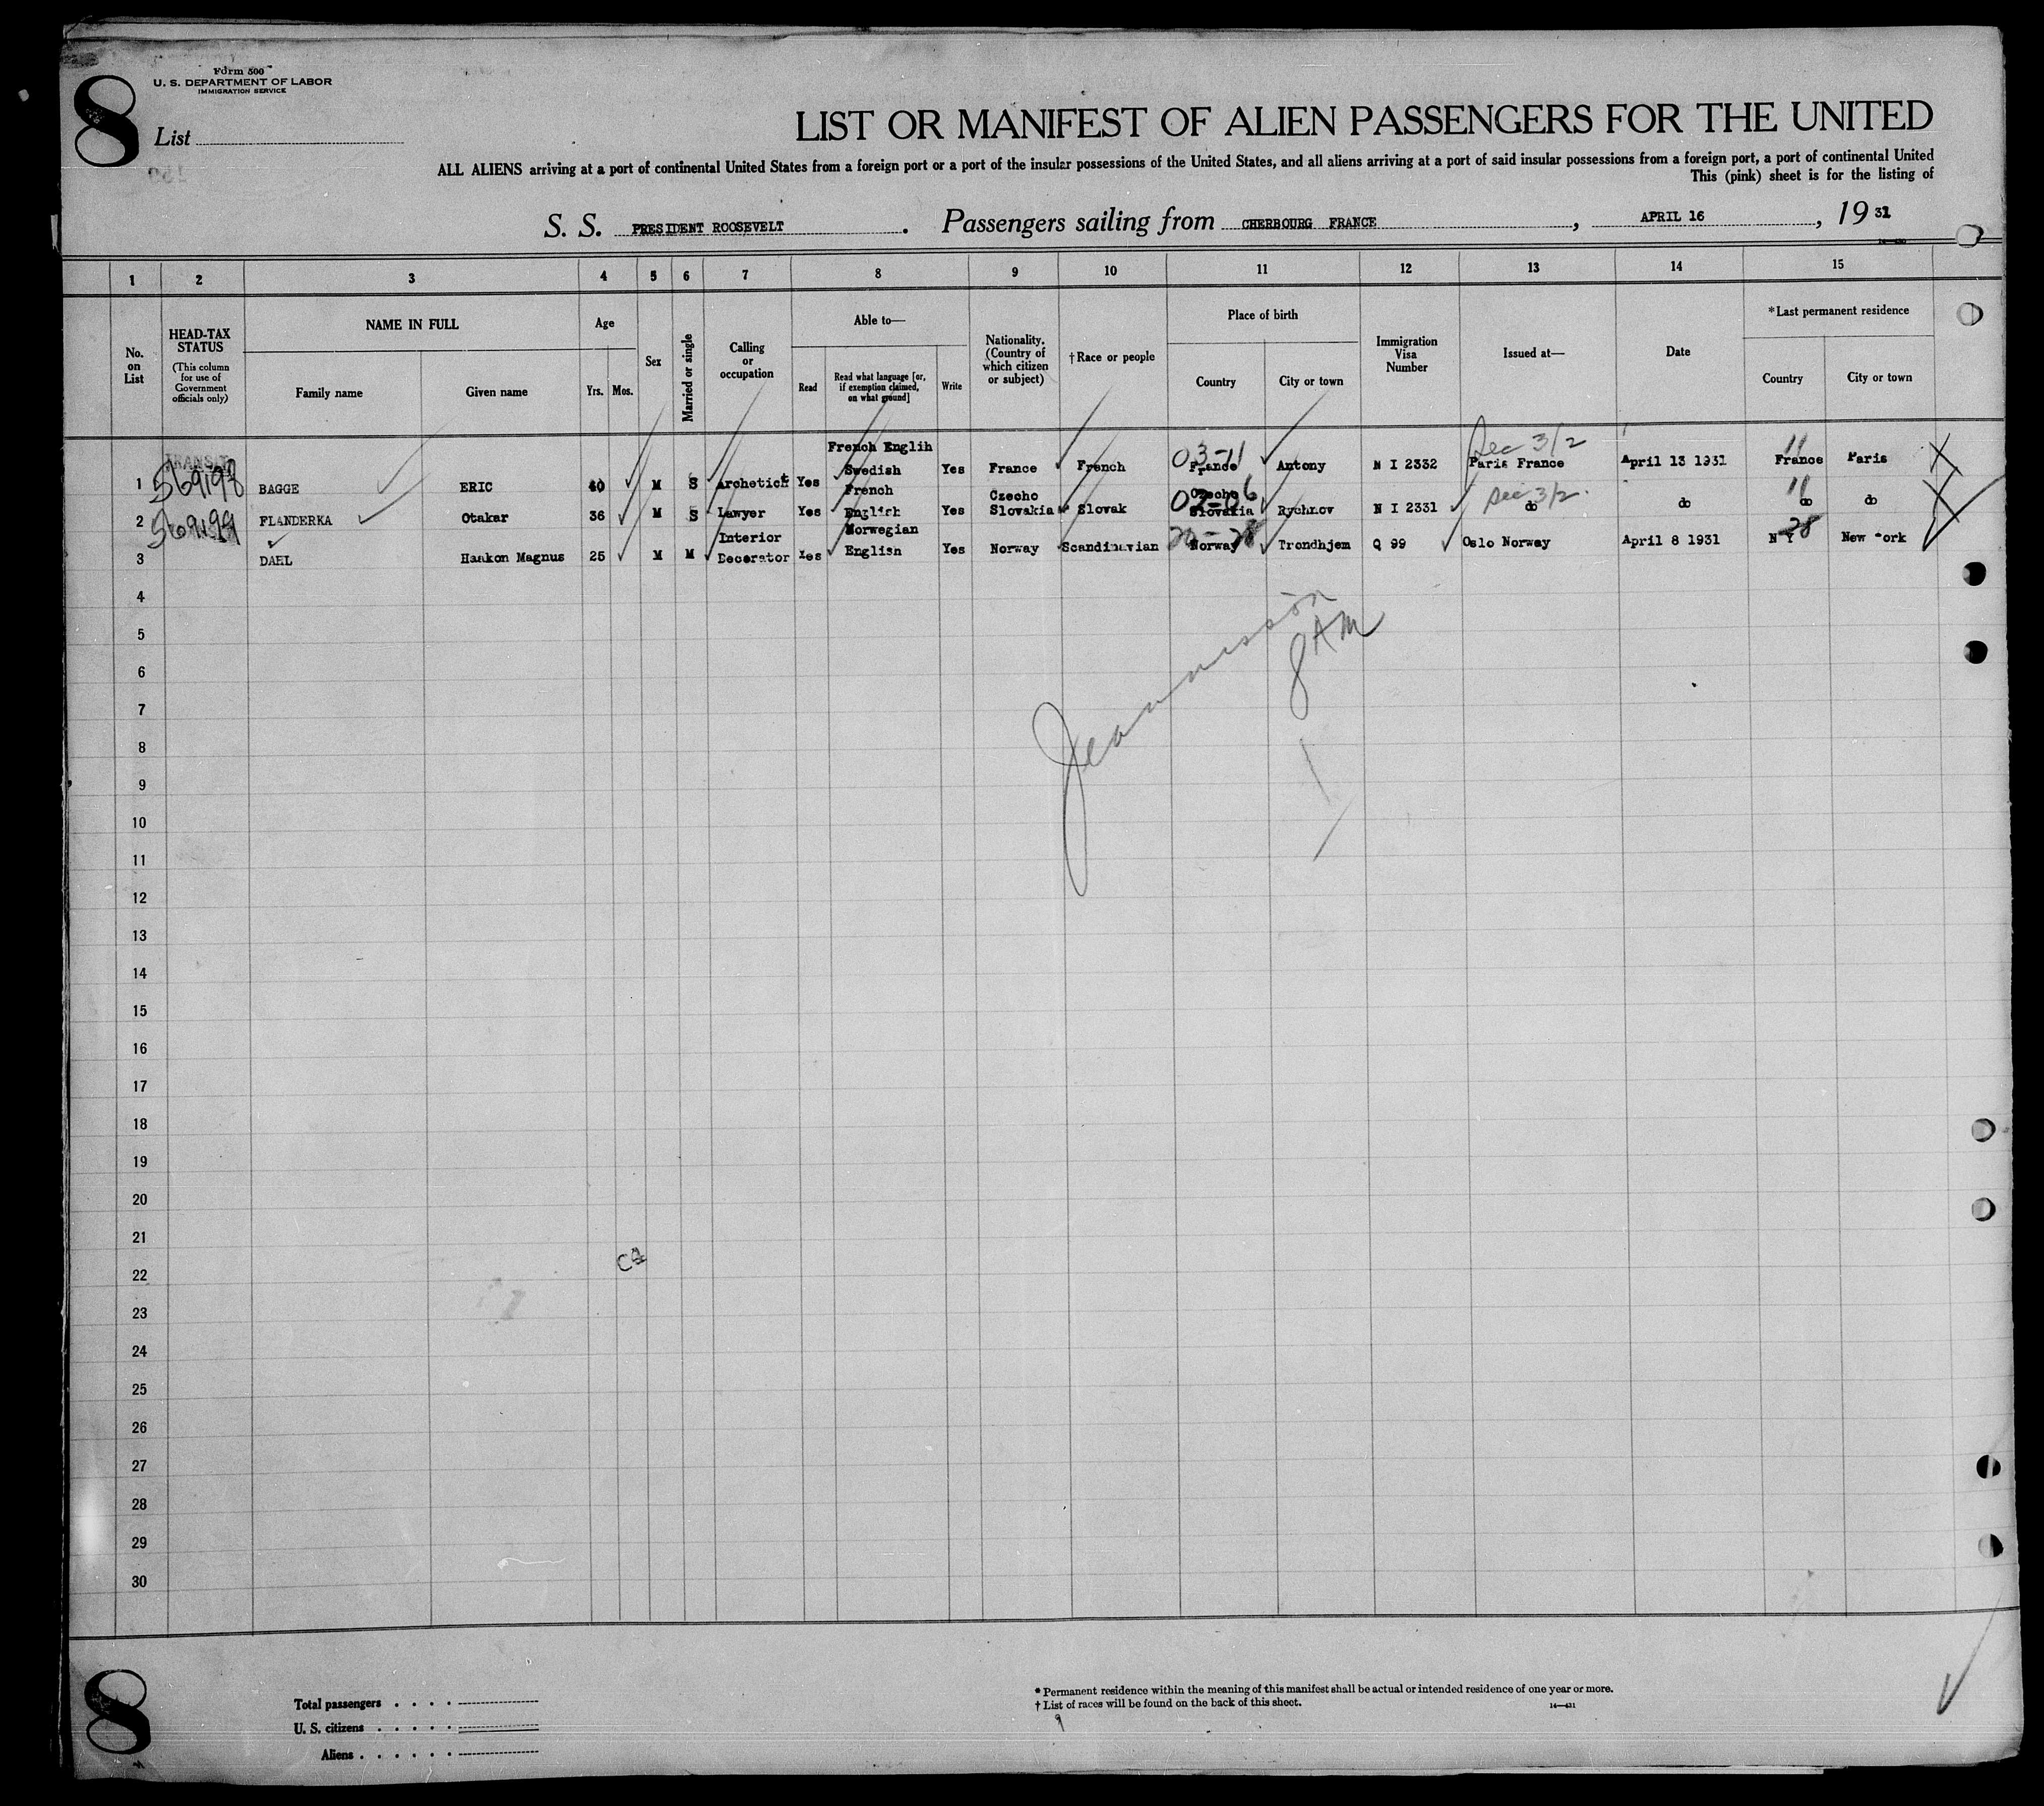 8
Form 500
U. S. DEPARTMENT OF LABOR
IMMIGRATION SERVICE
List
LIST OR MANIFEST OF ALIEN PASSENGERS FOR THE UNITED
ALL ALIENS arriving at a port of continental United States from a foreign port or a port of the insular possessions of the United States, and all aliens arriving at a port of said insular possessions from a foreign port, a port of continental United
This (pink) sheet is for the listing of
S. S. PRESIDENT ROOSEVELT . Passengers sailing from CHERBOURG FRANCE , APRIL 16 , 19 31
1 2 3 4 5 6 7 8 9 10 11 12 13 14 15
No. on List
HEAD-TAX STATUS
(This column for use of Government officials only)
NAME IN FULL
Family name
Given name
Age
Yrs.
Mos.
Sex
Married or single
Calling or occupation
Able to—
Read
Read what language [or, if exemption claimed, on what ground]
Write
Nationality. (Country of which citizen or subject)
†Race or people
Place of birth
Country
City or town
Immigration Visa Number
Issued at—
Date
*Last permanent residence
Country
City or town
TRANSIT
1 569198 BAGGE ERIC 40 M S Archetict Yes French Englih Swedish Yes France French 03-11 France Antony N I 2332 Sec 3/2 Paris France April 13 1931 11 France Paris
2 569199 FLANDERKA Otakar 36 M S Lawyer Yes French English Yes Czecho Slovakia Slovak 02-06 Czecho Slovakia Rychnov N I 2331 Sec 3/2 do do 11 do do
3 DAHL Haakon Magnus 25 M M Interior Decorator Yes Norwegian English Yes Norway Scandinavian Norway Trondhjem Q 99 Oslo Norway April 8 1931 28 N Y New York
4
5
6
8 AM
7
8
9
10
11
12
13
14
15
16
17
18
19
20
21
22
23
24
25
26
27
28
29
30
8
Total passengers
U. S. citizens
Aliens
* Permanent residence within the meaning of this manifest shall be actual or intended residence of one year or more.
† List of races will be found on the back of this sheet.
14—431